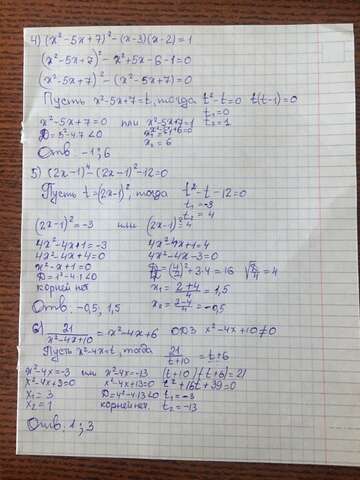 4) (x²-5x+7)²-(x-3)(x-2)=1
(x²-5x+7)²-x²+5x-6-1=0
(x²-5x+7)²-(x²-5x+7)=0
Пусть x²-5x+7=t, тогда t²-t=0 t(t-1)=0
t₁=0
x²-5x+7=0 или x²-5x+7=1 t₂=1
D=5²-4·7<0 x²-5x+6=0
x₂=6
Отв -1;6
5) (2x-1)⁴-(2x-1)²-12=0
Пусть t=(2x-1)², тогда t²-t-12=0
t₁=-3
t₂=4
(2x-1)²=-3 или (2x-1)²=4
4x²-4x+1=-3 4x²-4x+1=4
4x²-4x+4=0 4x²-4x-3=0
x²-x+1=0 =16 =4
D=1²-4·1<0
корней нет x₁=2+4/4=1,5
x₂=2-4/4=-0,5
Отв. -0,5, 1,5
6) 21/x²-4x+10=x²-4x+6 ОДЗ x²-4x+10≠0
Пусть x²-4x=t, тогда 21/t+10=t+6
x²-4x=-3 или x²-4x=-13 (t+10)(t+6)=21
x²-4x+3=0 x²-4x+13=0 t²+16t+39=0
x₁=3 D=4²-4·13<0 t₁=-3
x₂=1 корней нет. t₂=-13
Отв. 1;3